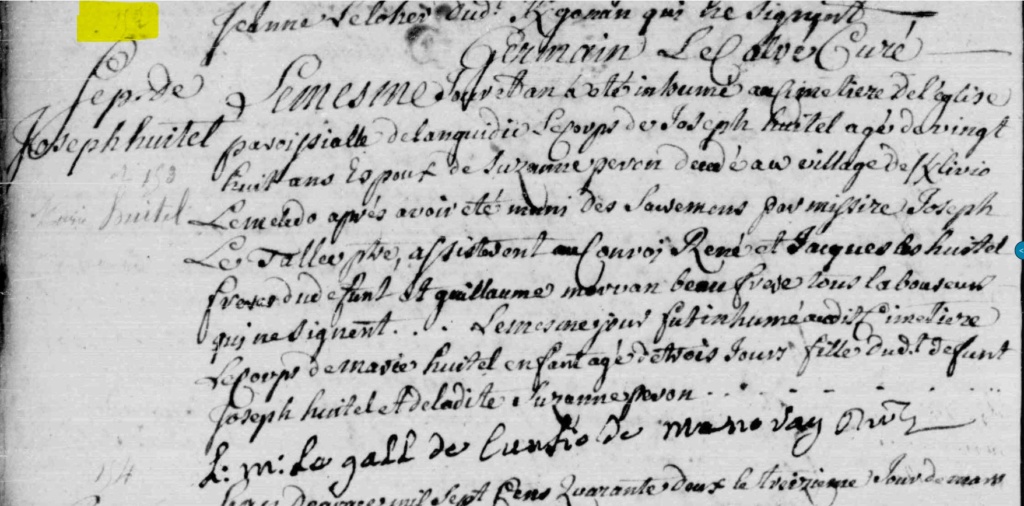 Jeanne Veloher dud.t Kgonan qui ne signent
Germain Le Calvé Curé
Sep. de
Joseph huitel
Lemesme Jour et an à eté inhumé au Cimetiere de l'église
paroissialle delanguidic Le Corps de Joseph huitel agé de vingt
huit ans Espoux de Suzanne peron decedé au village de Klivio
Lemelido aprés avoir eté muni des Sacremens par missire Joseph
Le Tallec ptre, assisteront au Convoi René et Jacques les huitel
freres dudefunt et guillaume morvan beau frere tous laboureurs
qui ne signent. . . . Lemesme jour fut inhumé audit Cimetiere
Le Corps de marie huitel enfant agé de trois Jours fille dud.t defunt
Joseph huitel et deladite Suzanne peron
et 153
Marie huitel
L: m: Le gall de
154
mil Sept Cens Quarante deux le treizieme Jour de mars